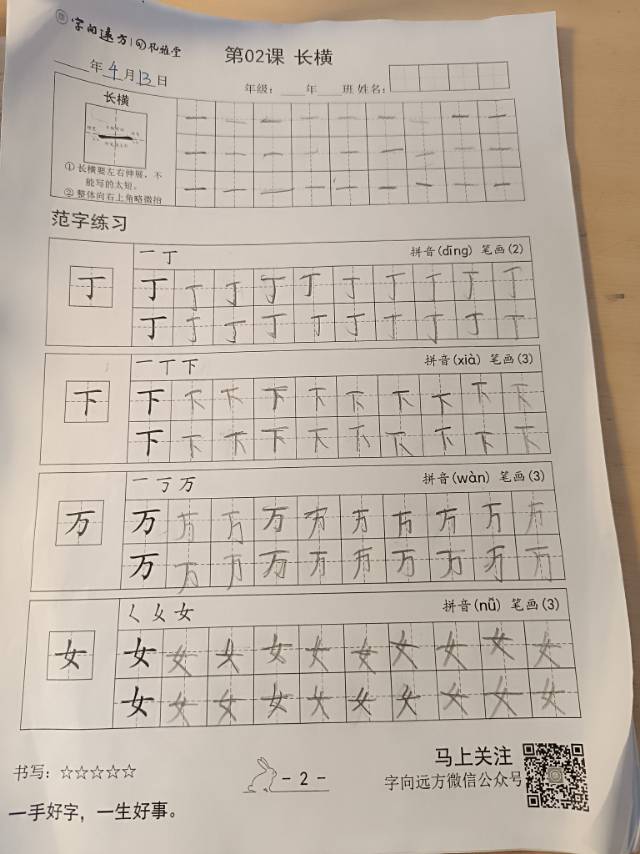 字向远方
第02课 长横
年4月13日
年级：____年____班 姓名：
长横
①长横要左右伸展，不
能写的太短。
②整体向右上角略微抬
范字练习
一丁
拼音(dīng) 笔画(2)
丁 丁 丁 丁 丁 丁 丁 丁 丁 丁 丁
丁 丁 丁 丁 丁 丁 丁 丁 丁 丁
一丅下
拼音(xià) 笔画(3)
下 下 下 下 下 下 下 下 下 下 下
下 下 下 下 下 下 下 下 下 下
一丂万
拼音(wàn) 笔画(3)
万 万 万 万 万 万 万 万 万 万 万
万 万 万 万 万 万 万 万 万 万
拼音(nǚ) 笔画(3)
女 女 女 女 女 女 女 女 女 女 女
女 女 女 女 女 女 女 女 女 女
马上关注
书写：☆☆☆☆☆
- 2 -
字向远方微信公众号
一手好字，一生好事。